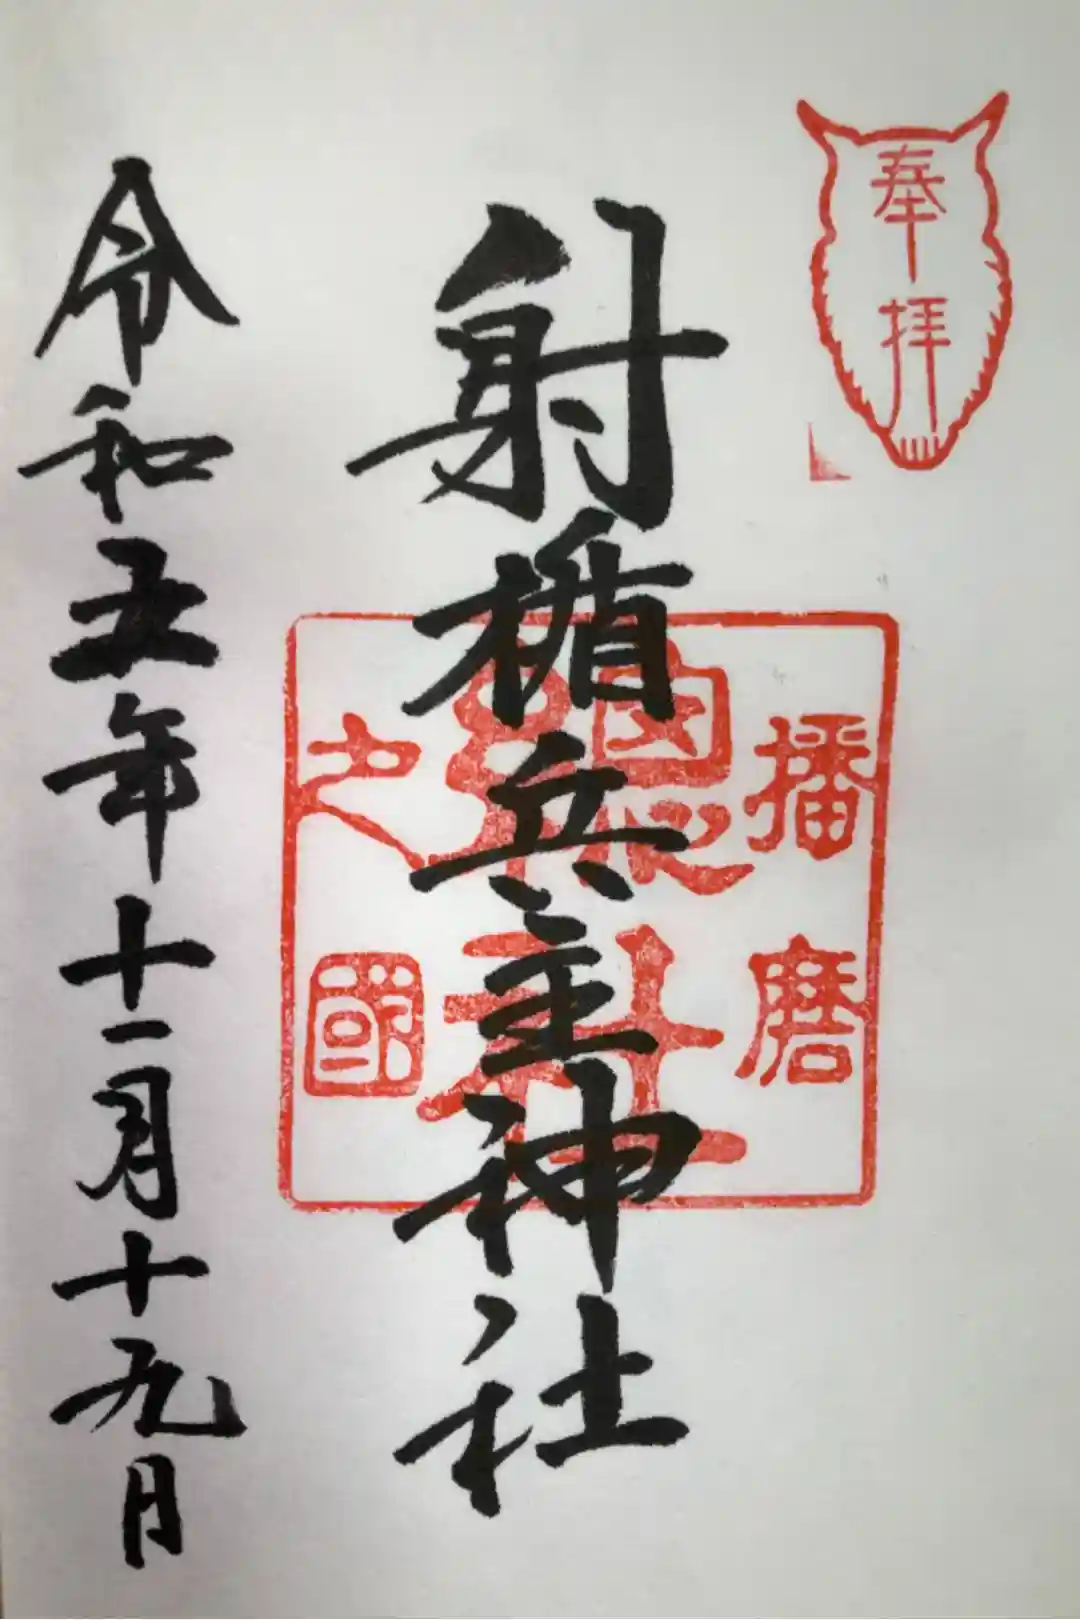 奉拝
射楯兵主神社
播磨
總社
之國
令和五年十一月十九日